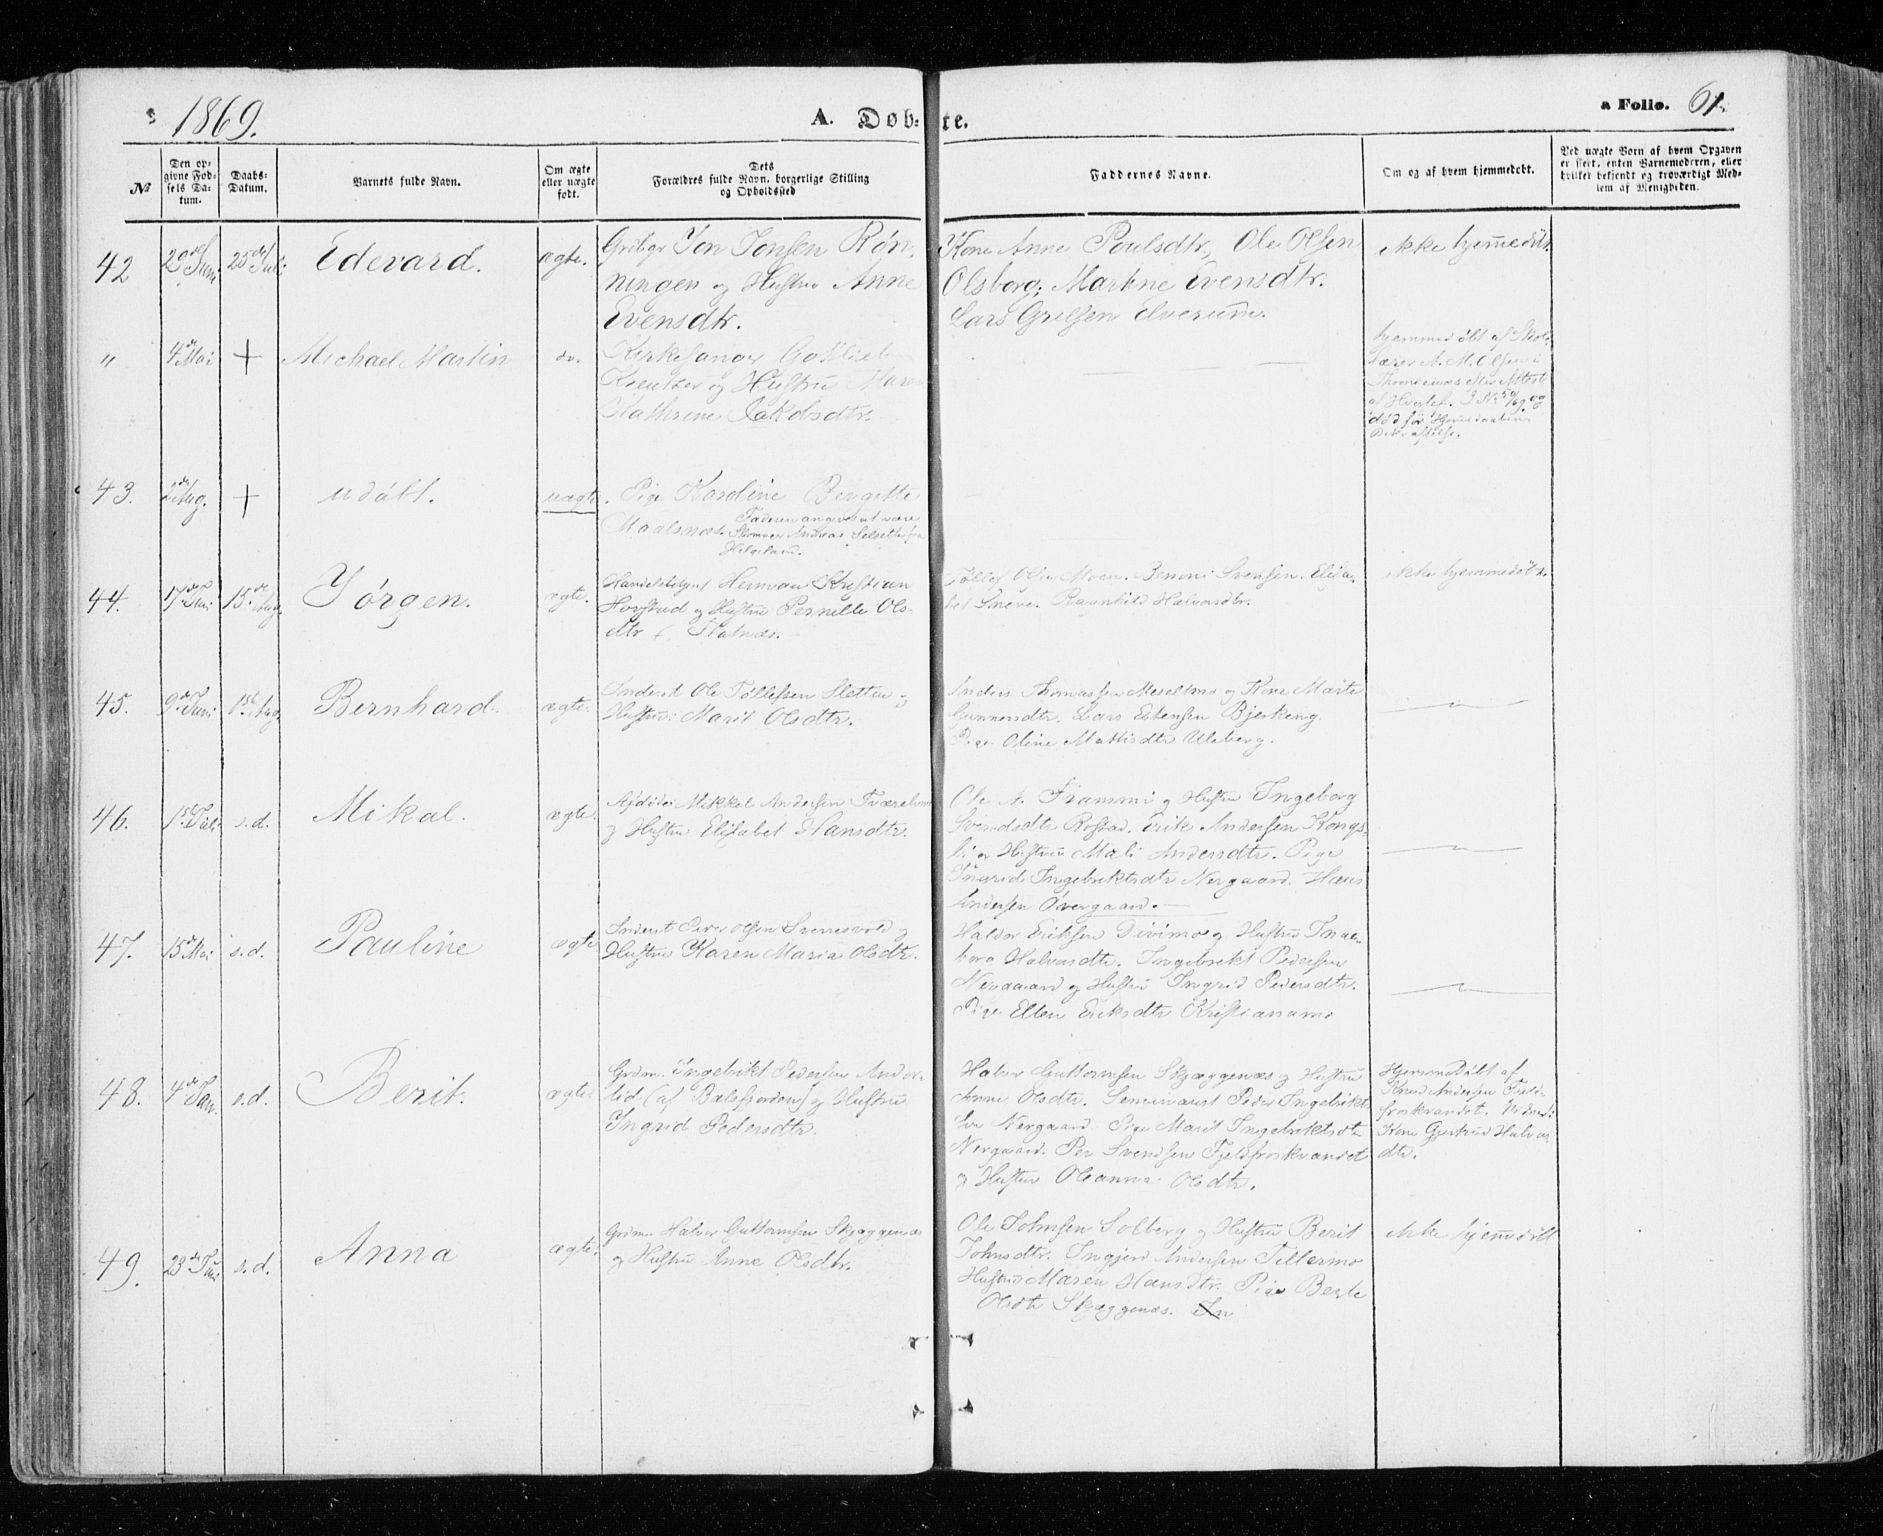 1869.
A. Døb-te.
a Folio. 61.
№
Den opgivne Fødsels Datum.
Daabs-Datum.
Barnets fulde Navn.
Om ægte eller uægte født.
Dets Forældres fulde Navn, borgerlige Stilling og Opholdssted
Faddernes Navne.
Om og af hvem hjemmedøbt.
Ved uægte Børn af hvem Opgaven er skeet, enten Barnemoderen, eller hvilket bekjendt og troværdigt Medlem af Menigheden.
42
25de Juli
Edevard.
ægte.
Jon Jonsen Røn-
ningen og Hustru Anne
Evensdtr.
Kone Anne Poulsdtr, Ole Olsen
Olsborg; Martine Evensdtr.
Lars Elverum.
ikke hjemmedøbt.
"
4de Mai
+
Michael Martin
do.
Kirkesanger Gottlieb
Kreutzer og Hustru Maren
Kathrine
hjemmedøbt af Skol-
lærer A. M. Olsen i
43.
2de Aug.
+
udøbt.
uægte.
Pige Karoline Bergitte
Maalsnæs. Faderen angives at være
Andreas fra
Helgeland.
44.
17de Juni
15de Aug
Jørgen.
ægte.
Herman Kristian
Hovstad og Hustru Pernille Ols-
dtr
Tollef Olsen Moen. Benoni Svensen. Elisa-
bet Ravnhild Halvorsdtr.
ikke hjemmedøbt.
45.
9de Juni
15de Aug
Bernhard.
ægte.
Inderst Ole Tollefsen Sletten og
Hustru: Marit Olsdtr.
Anders Thomassen og Kone Marte
Gunnersdtr. Lars Estensen Bjerkeng.
Pige Oline Mattisdtr Uleberg.
46.
1ste Juli
s.d.
Mikal.
ægte.
Afdøde Mikkel Andersen
og Hustru Elisabet Hansdtr.
Ole A. Frammi og Hustru Ingeborg
Svendsdtr Rostad. Erik Andersen Kongs-
li og Hustru Mali Andersdtr. Pige
Ingrid Ingebriktsdtr Nergaard. Hans
Andersen Øvergaard.
47.
15de Mai
s.d.
Pauline
ægte
Inderst Peder Olsen og
Hustru Karen Maria Olsdtr.
Haldor Eriksen Divimo og Hustru Inge-
borg Halvorsdtr. Ingebrikt Pedersen
Nergaard og Hustru Ingrid Pedersdtr.
Pige Ellen Eriksdtr Kristianamo
48.
4de Jan.
s.d.
Berit.
ægte
Grdm. Ingebrikt Pedersen Andor-
lid (af Balsfjorden) og Hustru
Ingrid Pedersdtr.
Halvor Guttormsen Skjæggenæs og Hustru
Anne Olsdtr. Seminarist Peder Ingebrikt-
sen Nergaard. Pige Marit Ingebriktsdtr
Nergaard. Per Svendsen Fjeldfroskvandet
og Hustru Oleanna Olsdtr.
Hjemmedøbt af
Knud Andersen Fjeld-
froskvandet. Vidne:
Kone Gjertrud Halvors
dtr.
49.
s.d.
Anna
ægte.
Grdm. Halvor Guttormsen Skjæggenæs
og Hustru Anne Olsdtr.
Ole Johnsen Solberg og Hustru Berit
Johnsdtr. Ingjerd Andersen Tellermo
Hustru Maren Hansdtr. Pige Berte
Olsdtr Skjæggenæs.
ikke hjemmedøbt